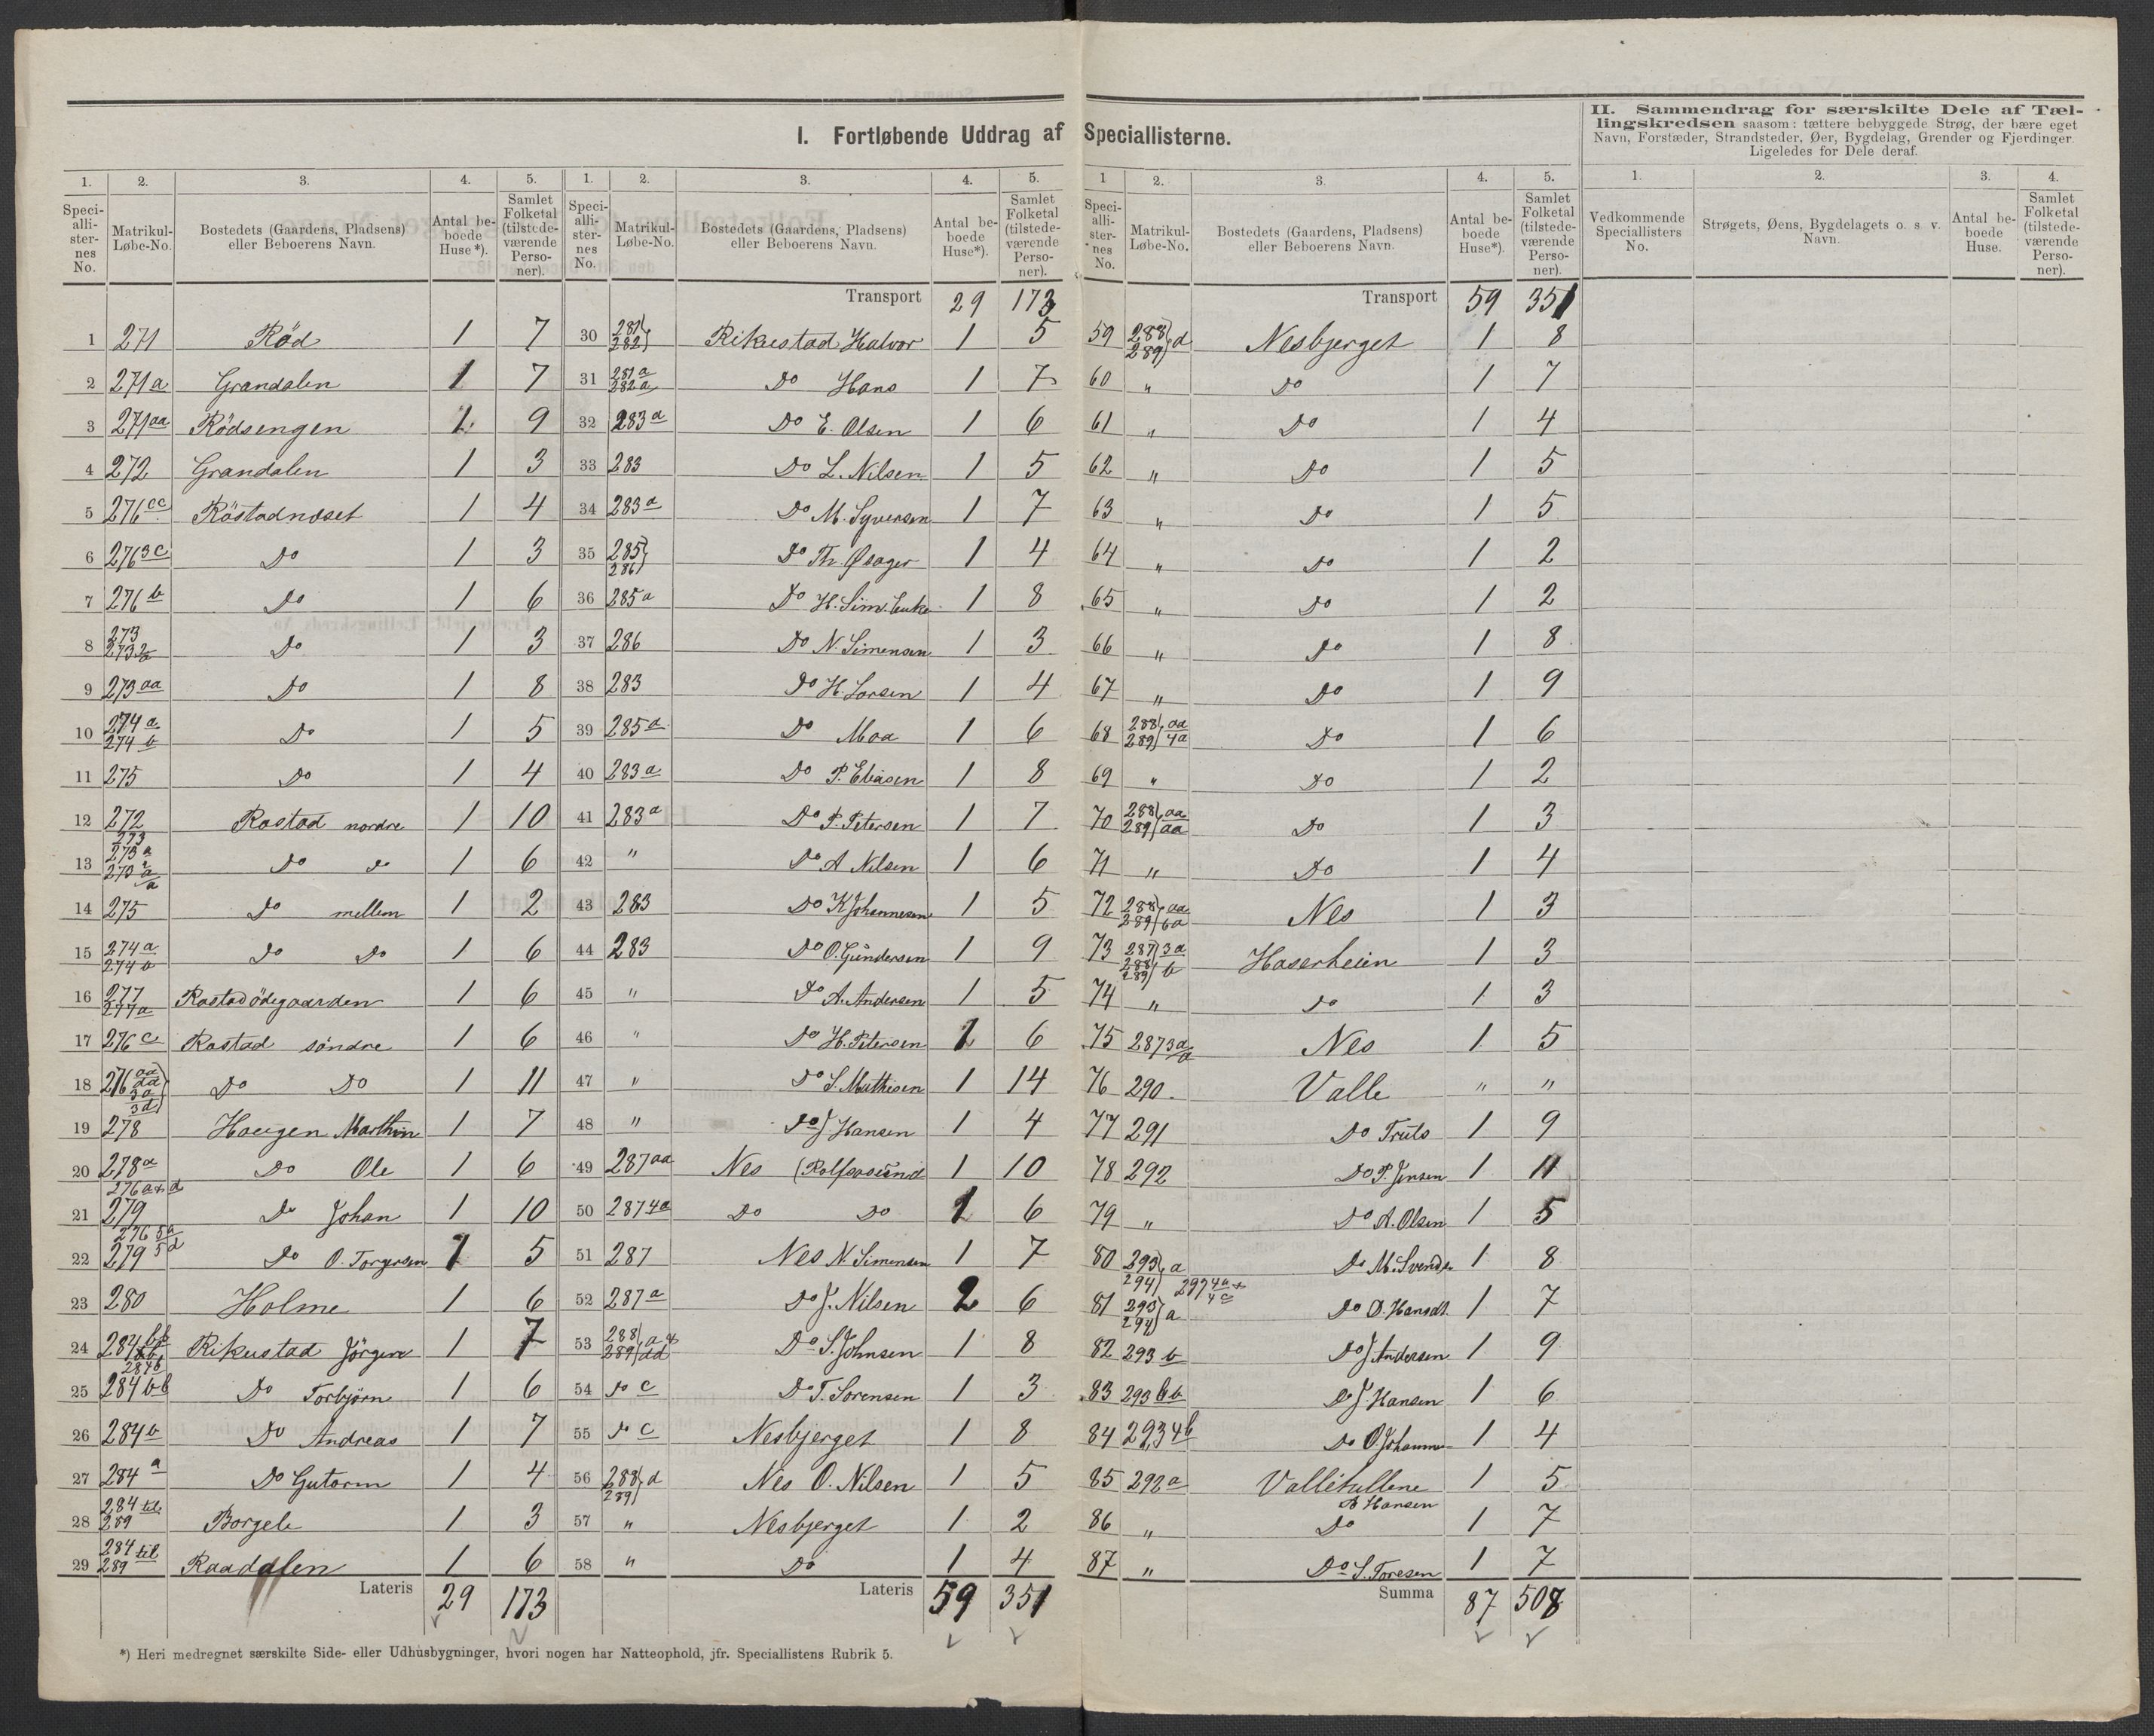 I. Fortløbende Uddrag af Speciallisterne.
II. Sammendrag for særskilte Dele af Tæl-
lingskredsen saasom: tættere bebyggede Strøg, der bære eget
Navn, Forstæder, Strandsteder, Øer, Bygdelag, Grender og Fjerdinger.
Ligeledes for Dele deraf.
1. 2. 3. 4. 5.
Speci-alli-ster-nes No. Matrikul-Løbe-No. Bostedets (Gaardens, Pladsens) eller Beboerens Navn. Antal be-boede Huse*). Samlet Folketal (tilstede-værende Perso-ner).
1 271 Röd 1 7
2 271a Grandalen 1 7
3 271aa Rödsengen 1 9
4 272 Grandalen 1 3
5 276cc Röstadnæset 1 4
6 276 3c Do 1 3
7 276b Do 1 6
8 273 Do 1 3
9 273aa Do 1 8
10 274a 274b Do 1 5
11 275 Do 1 4
12 272 273 Rostad nordre 1 10
13 273a Do do 1 6
14 275 Do mellem 1 2
15 274a 274b Do Do 1 6
16 277 277a Rostadödegaarden 1 6
17 276c Rostad söndre 1 6
18 276 aa dd 3a 3d Do Do 1 11
19 278 Haugen Marthin 1 7
20 278a Do Ole 1 6
21 276 a & d 279 Do Johan 1 10
22 276 5a 279 5d Do O. Torgersen 1 5
23 280 Holme 1 6
24 284 Rikustad Jörgen 1 7
25 284b 284bb Do Torbjörn 1 6
26 284b Do Andreas 1 7
27 284a Do Gutorm 1 4
28 284 til 289 Borgele 1 3
29 284 til 289 Raadalen 1 6
Lateris 29 173
1. 2. 3. 4. 5.
Speci-alli-ster-nes No. Matrikul-Løbe-No. Bostedets (Gaardens, Pladsens) eller Beboerens Navn. Antal be-boede Huse*). Samlet Folketal (tilstede-værende Perso-ner).
Transport 29 173
30 281 282 Rikustad Halvor 1 5
31 281a 282a Do Hans 1 7
32 283a Do E. Olsen 1 6
33 283 Do L. Nilsen 1 5
34 283a Do M. Syversen 1 7
35 285 286 Do Th. Øsager 1 4
36 285a Do H. Sim. Enke 1 8
37 286 Do N. Simensen 1 3
38 283 Do H. Larsen 1 4
39 285a Do Moa 1 6
40 283a Do P. Eliasen 1 8
41 283a Do P. Petersen 1 7
42 " Do A Nilsen 1 6
43 283 Do K Johannesen 1 5
44 283 Do O. Gundersen 1 9
45 " Do A. Andersen 1 5
46 " Do H. Petersen 1 6
47 " Do S. Mathisen 1 14
48 " Do J Hansen 1 4
49 287aa Nes (Rolfsøsund 1 10
50 287 4a Do Do 1 6
51 287 Nes N. Simensen 1 7
52 287a Do J. Nilsen 2 6
53 288 289 a & dd Do S. Johnsen 1 8
54 Do c Do T. Sorensen 1 3
55 Do c Nesbjerget 1 8
56 288 289 d Nes O. Nilsen 1 5
57 " Nesbjerget 1 2
58 " Do 1 4
Lateris 59 351
1 2. 3. 4. 5.
Speci-alli-ster-nes No. Matrikul-Løbe-No. Bostedets (Gaardens, Pladsens) eller Beboerens Navn. Antal be-boede Huse*). Samlet Folketal (tilstede-værende Perso-ner).
Transport 59 351
59 288 289 d Nesbjerget 1 8
60 " Do 1 7
61 " Do 1 4
62 " Do 1 5
63 " Do 1 5
64 " Do 1 2
65 " Do 1 2
66 " Do 1 8
67 " Do 1 9
68 288 289 aa 4a Do 1 6
69 " Do 1 2
70 288 289 aa aa Do 1 3
71 " Do 1 4
72 288 289 aa 6a Nes 1 3
73 287 288 289 3a b Haserheim 1 3
74 " Do 1 3
75 287 3a a Nes 1 5
76 290 Valle " "
77 291 Do Truls 1 9
78 292 Do P. Jensen 1 11
79 " Do A. Olsen 1 5
80 293 294 a Do M. Svends. 1 8
81 293 294 a 4a & 4c Do D. Hansdt. 1 7
82 293b Do J Andersen 1 9
83 293bb Do J. Hansen 1 6
84 293 4b Do O Johanne 1 4
85 292a Valletullene 1 5
86 " Do A Hansen 1 7
87 " Do S. Toresen 1 7
Summa 87 508
1. 2. 3. 4.
Vedkommende Speciallisters No. Strøgets, Øens, Bygdelagets o. s. v. Navn. Antal be-boede Huse. Samlet Folketal (tilstede-værende Perso-ner).
*) Heri medregnet særskilte Side- eller Udhusbygninger, hvori nogen har Natteophold, jfr. Speciallistens Rubrik 5.